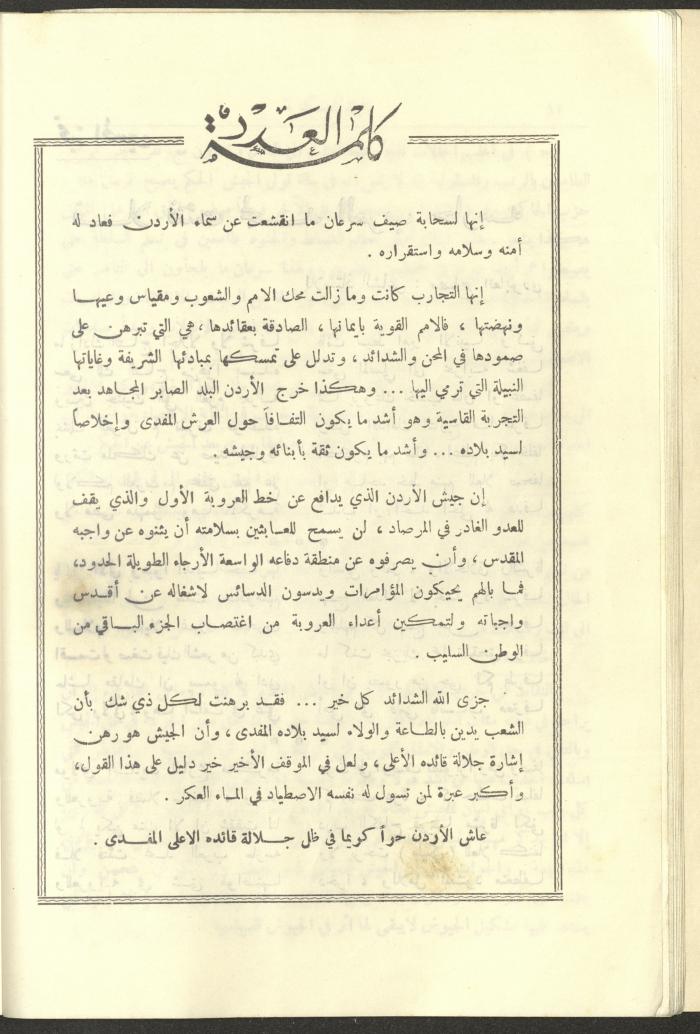 كلمة العدد
إنها لسحابة صيف سرعان ما انقشعت عن سماء الأردن فعاد له
أمنه وسلامه واستقراره .
إنها التجارب كانت وما زالت محك الامم والشعوب ومقياس وعيها
ونهضتها ، فالامم القوية بايمانها ، الصادقة بعقائدها ، هي التي تبرهن على
صمودها في المحن والشدائد ، وتدلل على تمسكها بمبادئها الشريفة وغاياتها
النبيلة التي ترمي اليها ... وهكذا خرج الأردن البلد الصابر المجاهد بعد
التجربة القاسية وهو أشد ما يكون التفافاً حول العرش المفدى وإخلاصاً
لسيد بلاده ... وأشد ما يكون ثقة بأبنائه وجيشه .
إن جيش الأردن الذي يدافع عن خط العروبة الأول والذي يقف
للعدو الغادر في المرصاد ، لن يسمح للعابثين بسلامته أن يثنوه عن واجبه
المقدس ، وأن يصرفوه عن منطقة دفاعه الواسعة الأرجاء الطويلة الحدود،
فما بالهم يحيكون المؤامرات ويدسون الدسائس لاشغاله عن أقدس
واجباته ولتمكين أعداء العروبة من اغتصاب الجزء الباقي من
الوطن السليب .
جزى الله الشدائد كل خير ... فقد برهنت لكل ذي شك بأن
الشعب يدين بالطاعة والولاء لسيد بلاده المفدى ، وأن الجيش هو رهن
إشارة جلالة قائده الأعلى ، ولعل في الموقف الأخير خير دليل على هذا القول،
وأكبر عبرة لمن تسول له نفسه الاصطياد في الماء العكر .
عاش الأردن حراً كريما في ظل جلالة قائده الاعلى المفدى .